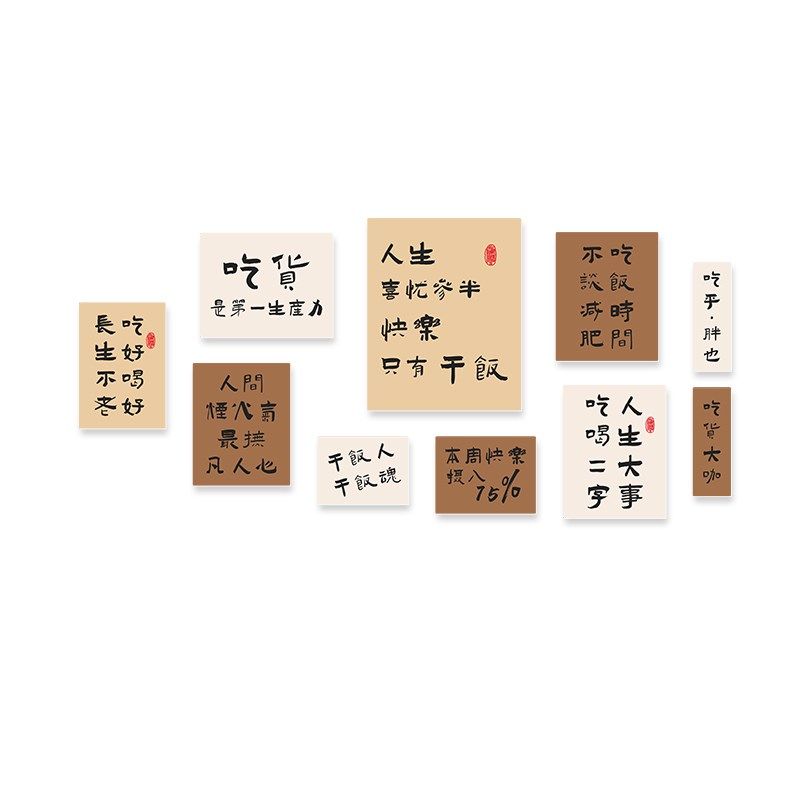 吃好喝好
長生不老
吃貨
是第一生産力
人間
煙火氣
最撫
凡人心
人生
喜忧參半
快樂
只有干飯
干飯人
干飯魂
本周快樂
摄入
75%
吃飯時間
不談減肥
人生大事
吃喝二字
吃乎·胖也
吃貨大咖